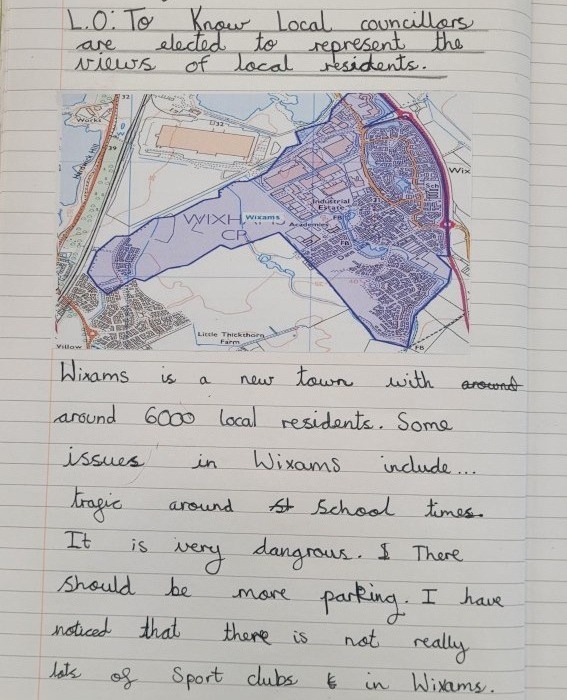 L.O: To Know Local councillors
are elected to represent the
views of local residents.
Works
32
39
1/32
Wix
Sch
Industrial
Estate
WIXH
Wixams
Academies
FB
CP
FB
Little Thickthorn
Farm
FB
Wixams is a new town with around
around 6000 local residents. Some
issues in Wixams include...
tragic around St School times.
It is very dangrous. I There
should be more parking. I have
noticed that there is not really
lots of Sport clubs in Wixams.